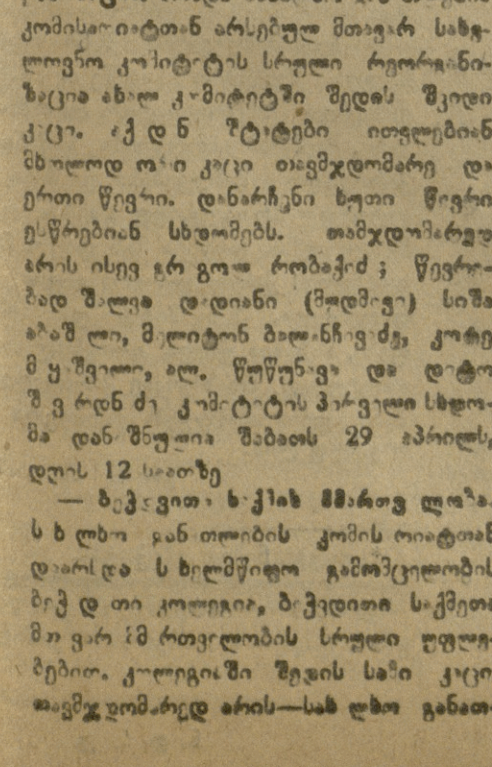 კომისარიატთან არსებულ მთავარ სახე-
ლოვნო კომიტეტის სრული რეორგანი-
ზაცია ახალ კომიტეტში შედის შვიდი
კაცი. აქედან შტატები ითვლებიან
მხოლოდ ორი კაცი თავმჯდომარე და
ერთი წევრი. დანარჩენი ხუთი წევრი
ესწრებიან სხდომებს. თამჯდომარედ
არის ისევ გრიგოლ რობაქიძე; წევრე-
ბად შალვა დადიანი (მოდმივი) სიმა
აბაშელი, მელიტონ ბალანჩივაძე, კოტე
მაყაშვილი, ალ. წუწუნავა და დიტო
შევარდნაძე კომიტეტის პირველი სხდო-
მა დანიშნულია შაბათს 29 აპრილს,
დღის 12 საათზე
— ბეჭდვითი საქმის მმართველობა.
სახალხო განათლების კომისარიატთან
დაარსდა სახელმწიფო გამომცელობის
ბეჭდვითი კოლეგია, ბეჭვდითი საქმეთა
მთავარ მმართველობის სრული უფლე-
ბებით. კოლეგიაში შედის სამი კაცი
თავმჯდომარედ არის—სახალხო განათ-